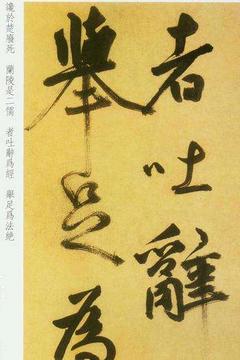 者吐辭
舉足為
讒於楚廢死 蘭陵是二儒 者吐辭爲經 舉足爲法絶